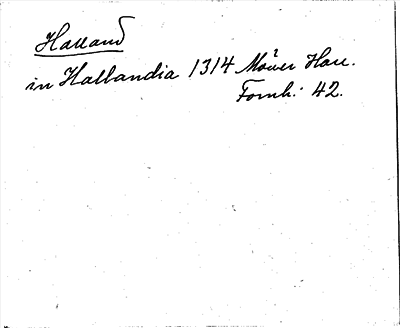 Halland
in Hallandia 1314 Möller Hall.
Fornh: 42.